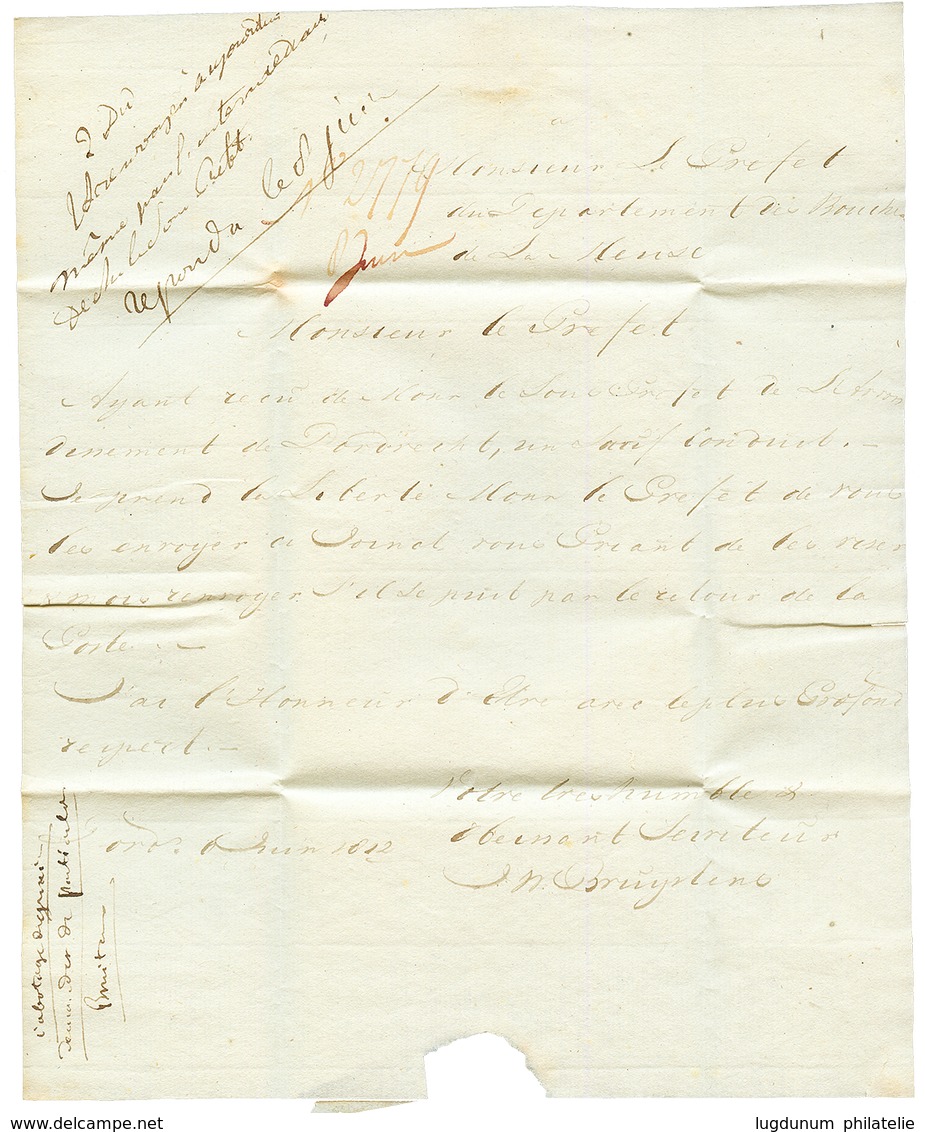 2 Du
même par l'intermédiair
repondu le 8 juin
N° 2779
8 Juin
a
Monsieur Le Prefet
du Departement des Bouche
de La Meuse
Monsieur le Prefet
Ayant recu de Monr le Sous Prefet de L'Arron
disement de Dordrecht, un Sauf Conduit. –
Je prend la Liberté Monr le Prefét de vous
les envoyer ci Joinct vous Priant de les
mois renvoyer S'il Se puit par le retour de la
Poste. –
J'ai l'Honneur d'Etre avec le plus Profond
respéct. –
Votre tres humble &
Obeisant Serviteur
J. W. Bruystens
Dordt 6 Juin 1812
cabotage
demander de
www.delcampe.net
lugdunum philatelie